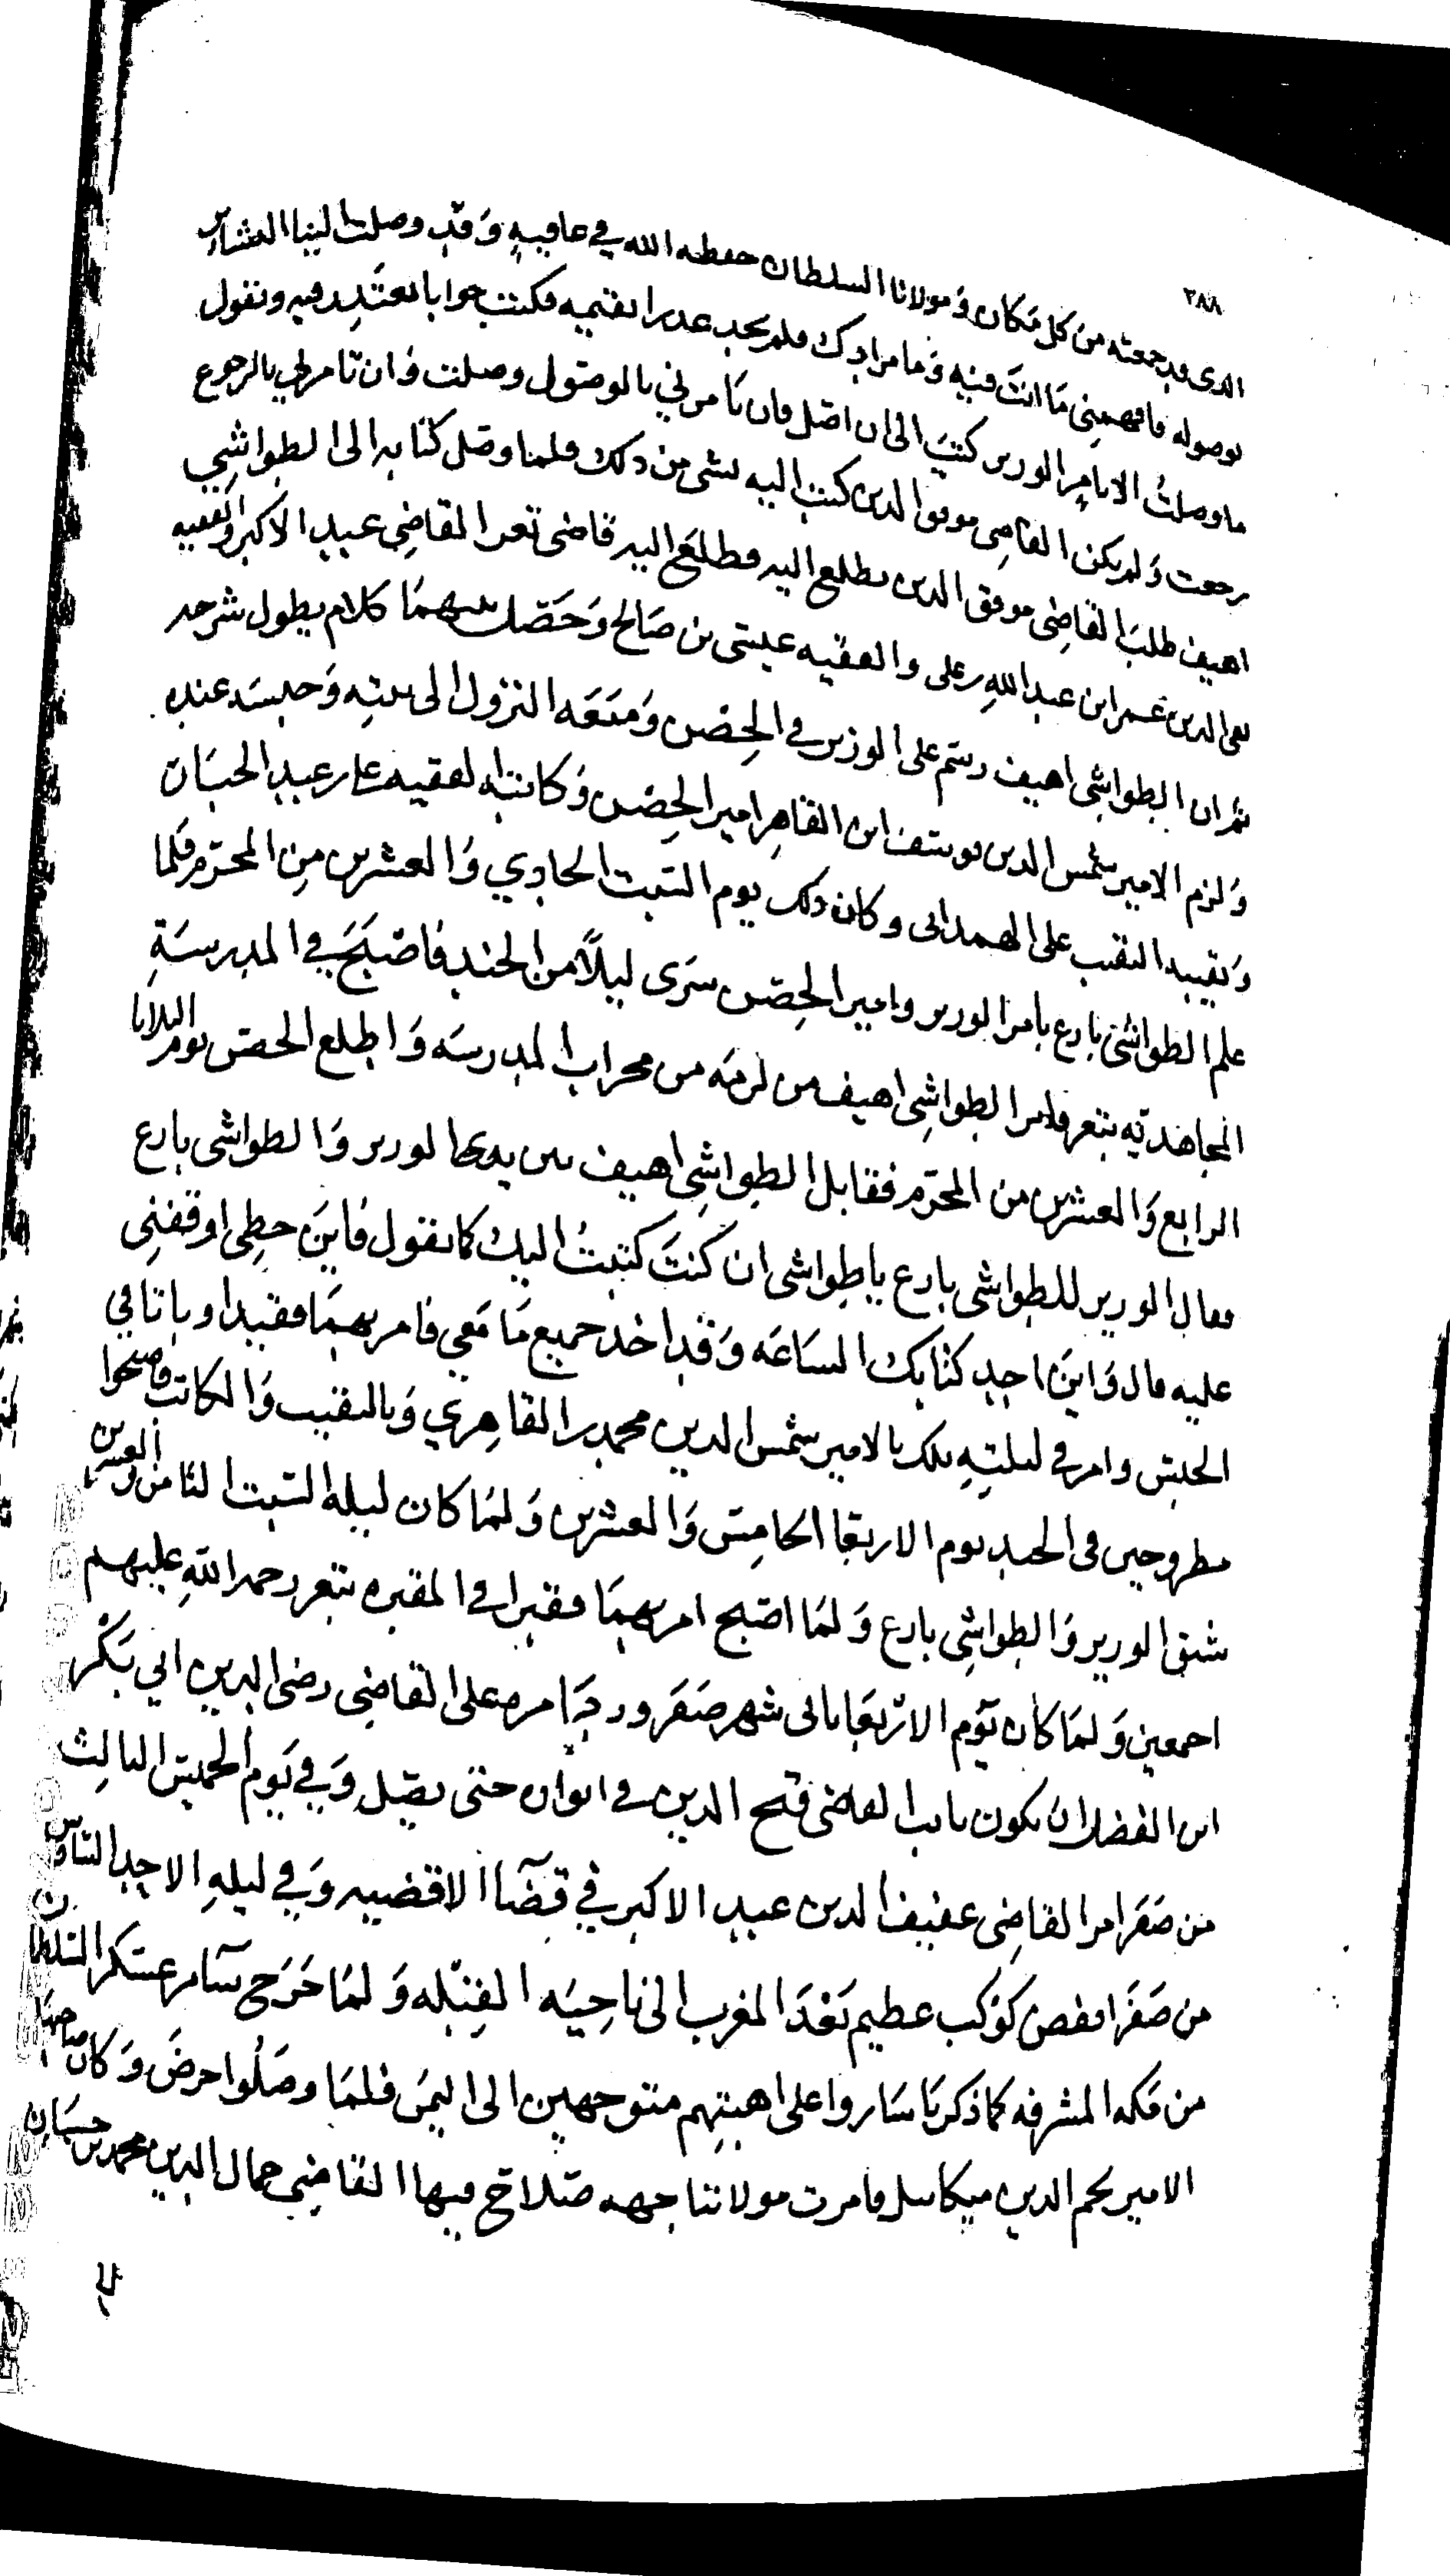 ٣٨٨
الذي قد جمعته من كل مكان ومولانا السلطان حفظه الله في عافيةٍ وقد وصلت الينا البشاير
بوصوله فافهمني ما انت فيه وما مرادك فلم يجد عذرا يقيمه فكتب جوابا يعتذر فيه ويقول
ما وصلتُ الا بامر الوزير كتب الى ان اصل فان تامرني بالوصول وصلت وان تامرني بالرجوع
رجعت ولم يكن القاضي موفق الدين كتب اليه بشي من ذلك فلما وصل كتابه الى الطواشي
اهيف طلب القاضي موفق الدين يطلع اليه فطلع اليه قاضي تعز القاضي عبد الاكبر والفقيه
تقي الدين عمر ابن عبد الله بن علي والفقيه عيسى بن صالح وحصل بينهما كلام يطول شرحه
ثم ان الطواشي اهيف رسم على الوزير في الحصن ومنعه النزول الى بيته وحبسه عنده
ولزم الامير شمس الدين يوسف ابن القاهر امير الحصن وكاتبه الفقيه علي بن عبد الحسان
ونقيبه النقيب علي الهمداني وكان ذلك يوم السبت الحادي والعشرين من المحرم فلما
علم الطواشي بارع بامر الوزير وامير الحصن سرى ليلاً من الجند فاصبح في المدرسة
المجاهدية بتعز فامر الطواشي اهيف من لزمه من محراب المدرسه واطلع الحصن يوم الثلاثا
الرابع والعشرين من المحرم فقابل الطواشي اهيف بين يديه الوزير والطواشي بارع
فقال الوزير للطواشي بارع يا طواشي ان كنتَ كتبتُ اليك كما تقول فاين خطي اوقفني
عليه قال واين اجد كتابك الساعه وقد اخذ جميع ما معي فامر بهما فقيدا وباتا في
الحبس وامر في ليلته تلك بالامير شمس الدين محمد بن القاهري وبالنقيب والكاتب فاصبحوا
مطروحين في الجند يوم الاربعا الخامس والعشرين ولما كان ليله السبت الثامن والعشرين
شنق الوزير والطواشي بارع ولما اصبح امر بهما فقبرا في المقبره بتعز رحمه الله عليهم
اجمعين ولما كان يوم الاربعا ثاني شهر صفر ورد امره على القاضي رضي الدين ابي بكر
ابن الفضل ان يكون نايب القاضي فتح الدين في ابوان حتى يصل وفي يوم الخميس الثالث
من صفر امر القاضي عفيف الدين عبد الاكبر في قضآ الاقضيه وفي ليله الاحد السادس
من صفر انقض كوكب عظيم بعد المغرب الى ناحيه القبله ولما خرج سآير عسكر السلطان
من مكه المشرفه كما ذكرنا ساروا على اهبتهم متوجهين الى اليمن فلما وصلوا حرض وكان صاحبها
الامير نجم الدين ميكاييل فامرت مولاتنا جهه صلاح فيها القاضي جمال الدين محمد بن حسان